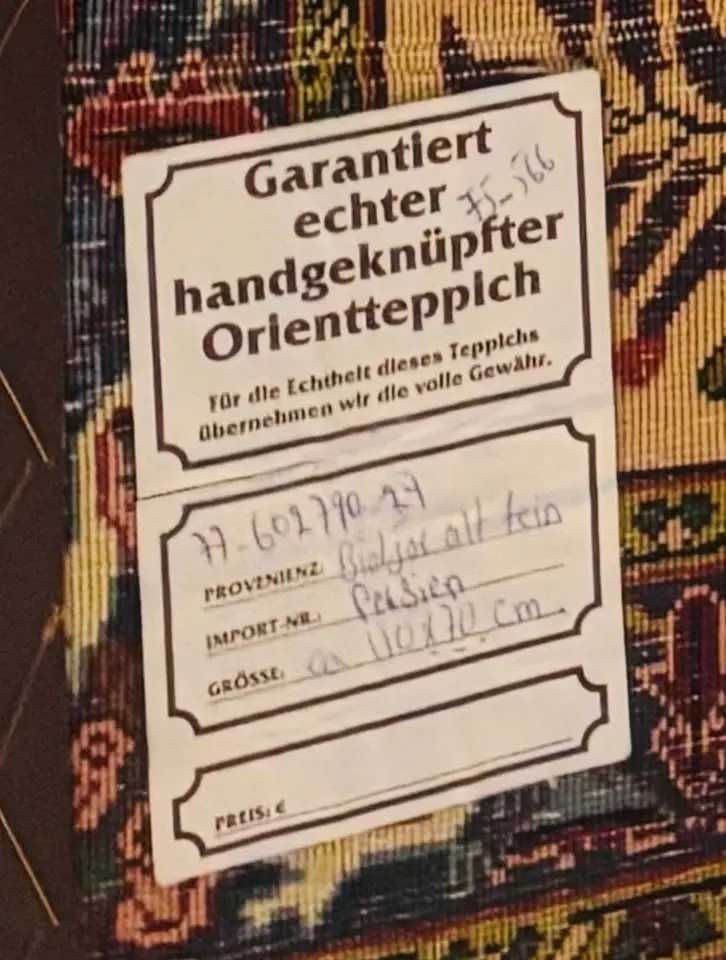 Garantiert
echter 75-566
handgeknüpfter
Orientteppich
Für die Echtheit dieses Teppichs
übernehmen wir die volle Gewähr.
77-602790-27
PROVENIENZ: Bidjar alt fein
IMPORT-NR.: Persien
GRÖSSE: ca 110x70 cm.
PREIS: €